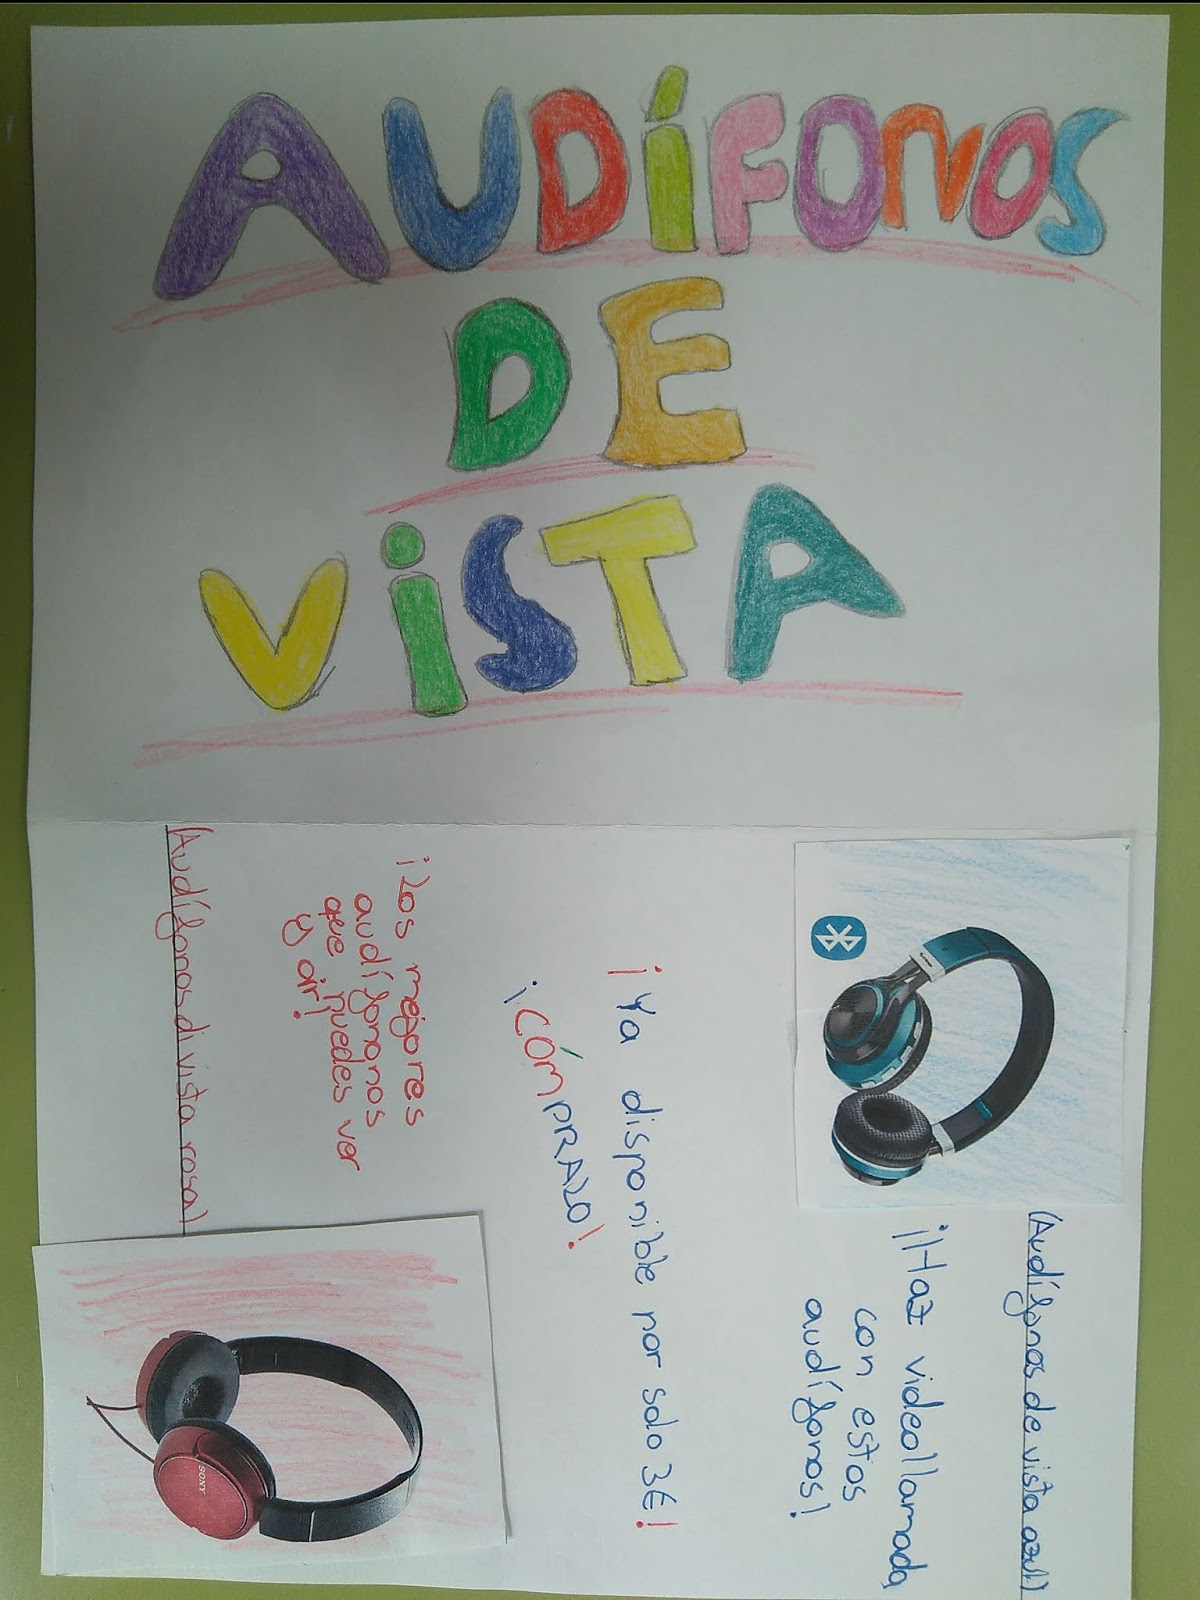 AUDÍFONOS
DE
ViSTA
(Audífonos de vista azul)
¡Haz videollamada,
con estos
audífonos!
¡Ya disponible por solo 3€!
¡CÓMPRALO!
¡Los mejores
audífonos
que puedes ver
y oir!
(Audífonos di vista rosa)
SONY